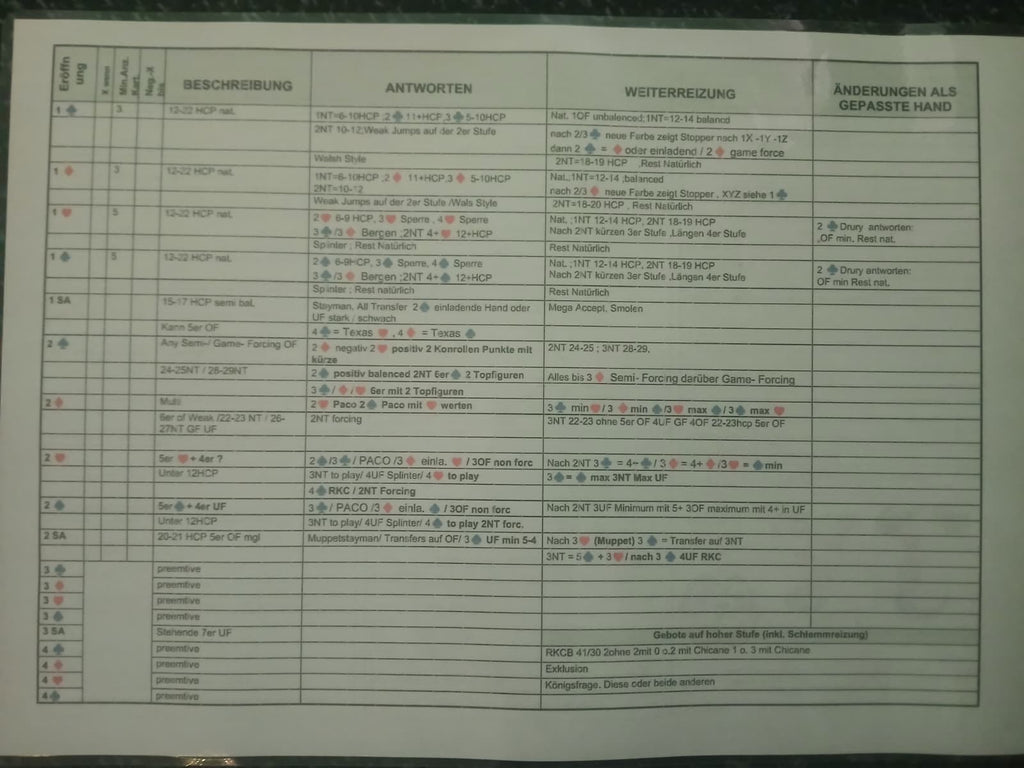 Eröffnung X wenn Min.Anz. Kart. Neg.-X bis BESCHREIBUNG ANTWORTEN WEITERREIZUNG ÄNDERUNGEN ALS GEPASSTE HAND
1 ♣ 3 12-22 HCP nat. 1NT=6-10HCP ;2 ♣ 11+HCP,3 ♣ 5-10HCP Nat. 1OF unbalenced;1NT=12-14 balancd
2NT 10-12,Weak Jumps auf der 2er Stufe nach 2/3 ♣ neue Farbe zeigt Stopper nach 1X -1Y -1Z
dann 2 ♣ = ♦ oder einladend / 2 ♦ game force
Walsh Style 2NT=18-19 HCP ,Rest Natürlich
1 ♦ 3 12-22 HCP nat. 1NT=6-10HCP ;2 ♦ 11+HCP,3 ♦ 5-10HCP Nat.,1NT=12-14 ,balanced
2NT=10-12 nach 2/3 ♦ neue Farbe zeigt Stopper , XYZ siehe 1 ♣
Weak Jumps auf der 2er Stufe /Wals Style 2NT=18-20 HCP , Rest Natürlich
1 ♥ 5 12-22 HCP nat. 2 ♥ 6-9 HCP, 3 ♥ Sperre , 4 ♥ Sperre Nat. ;1NT 12-14 HCP, 2NT 18-19 HCP
3 ♣/3 ♦ Bergen ;2NT 4+ ♥ 12+HCP Nach 2NT kürzen 3er Stufe ,Längen 4er Stufe 2 ♣ Drury antworten: ,OF min. Rest nat.
Splinter ; Rest Natürlich Rest Natürlich
1 ♠ 5 12-22 HCP nat. 2 ♠ 6-9HCP, 3 ♠ Sperre, 4 ♠ Sperre Nat. ;1NT 12-14 HCP, 2NT 18-19 HCP
3 ♣/3 ♦ Bergen ;2NT 4+ ♠ 12+HCP Nach 2NT kürzen 3er Stufe ,Längen 4er Stufe 2 ♣ Drury antworten: OF min Rest nat.
Splinter ; Rest natürlich Rest Natürlich
1 SA 15-17 HCP semi bal. Stayman, All Transfer 2 ♠ einladende Hand oder UF stark / schwach Mega Accept, Smolen
Kann 5er OF 4 ♣ = Texas ♥ , 4 ♦ = Texas ♠
2 ♣ Any Semi-/ Game- Forcing OF 2 ♦ negativ 2 ♥ positiv 2 Konrollen Punkte mit kürze 2NT 24-25 ; 3NT 28-29,
24-25NT / 28-29NT 2 ♠ positiv balenced 2NT 6er ♠ 2 Topfiguren Alles bis 3 ♦ Semi- Forcing darüber Game- Forcing
3 ♣ / ♦ / ♥ 6er mit 2 Topfiguren
2 ♦ Multi 2 ♥ Paco 2 ♠ Paco mit ♥ werten 3 ♣ min ♥/ 3 ♦ min ♠ /3 ♥ max ♠ / 3 ♠ max ♥
6er of Weak /22-23 NT / 26-27NT GF UF 2NT forcing 3NT 22-23 ohne 5er OF 4UF GF 4OF 22-23hcp 5er OF
2 ♥ 5er ♥ + 4er ? 2 ♠ /3 ♣ / PACO /3 ♦ einla. ♥ / 3OF non forc Nach 2NT 3 ♣ = 4+ ♣ / 3 ♦ = 4+ ♦ /3 ♥ = ♠ min
Unter 12HCP 3NT to play/ 4UF Splinter/ 4 ♥ to play 3 ♠ = ♠ max 3NT Max UF
4 ♠ RKC / 2NT Forcing
2 ♠ 5er ♠ + 4er UF 3 ♣ / PACO /3 ♦ einla. ♠ / 3OF non forc Nach 2NT 3UF Minimum mit 5+ 3OF maximum mit 4+ in UF
Unter 12HCP 3NT to play/ 4UF Splinter/ 4 ♠ to play 2NT forc.
2 SA 20-21 HCP 5er OF mgl Muppetstayman/ Transfers auf OF/ 3 ♠ UF min 5-4 Nach 3 ♥ (Muppet) 3 ♠ = Transfer auf 3NT
3NT = 5 ♠ + 3 ♥ / nach 3 ♠ 4UF RKC
3 ♣ preemtive
3 ♦ preemtive
3 ♥ preemtive
3 ♠ preemtive
3 SA Stehende 7er UF Gebote auf hoher Stufe (inkl. Schlemmreizung)
4 ♣ preemtive RKCB 41/30 2ohne 2mit 0 o.2 mit Chicane 1 o. 3 mit Chicane
4 ♦ preemtive Exklusion
4 ♥ preemtive Königsfrage. Diese oder beide anderen
4 ♠ preemtive